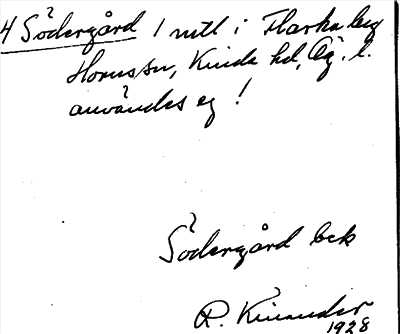 4 Södergård 1 mtl i Flarka by
Hornssn, Kinda hd, Ög. l.
användes ej!
Södergård bek
R. Kinander
1928